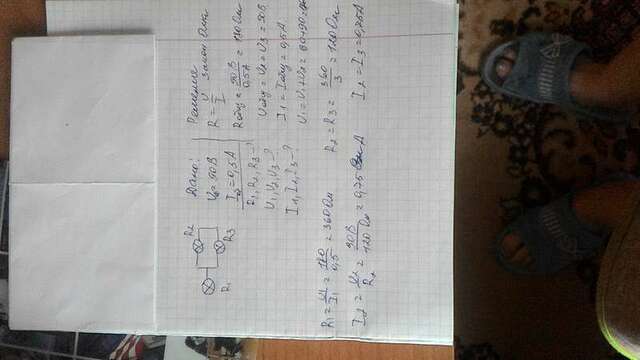 R2
R1
R3
Дано:
U0=90В
I0=0,5А
R1, R2, R3-?
U1, U2, U3-?
I1, I2, I3-?
Решение
R=U/I закон Ома
Rобщ=90В/0,5А=180 Ом
Uобщ=U2=U3=90В
I1=Iобщ=0,5А
U1=U2+U3=90+90=180
R1=U1/I1=180/0,5=360 Ом
R2=R3=360/3=120 Ом
I2=U2/R2=90В/120 Ом=0,75 А
I2=I3=0,75А